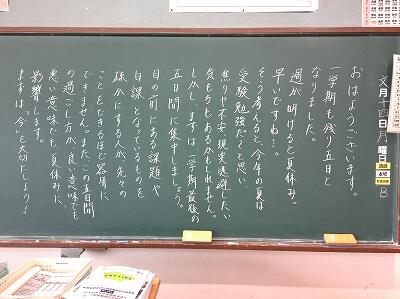 おはようございます。
一学期も残り五日と
なりました。
週が明けると夏休み。
早いですね…。
そう考えると、今年の夏は
受験勉強だ〜と思い、
焦りや不安、現実逃避したい
気もちもあるかもしれません。
しかし、まずは一学期最後の
五日間に集中しましょう。
目の前にある課題や
日課となっているものを
疎かにする人が、先々の
ことをできるほど器用に
できません。またこの五日間
の過ごし方が、良い意味でも
悪い意味でも、夏休みに
影響します。
まずは「今」を大切にしよう!
文月十四日月曜日
B